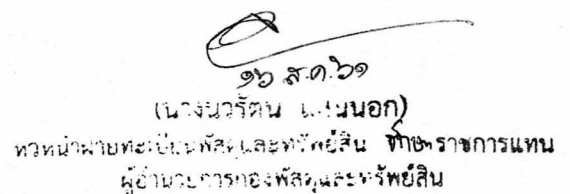 ๑๖ ส.ค. ๖๑
(นางนวรัตน นอก)
หัวหน้าฝ่ายทะเบียนพัสดุและทรัพย์สิน รักษาราชการแทน
ผู้อำนวยการกองพัสดุและทรัพย์สิน